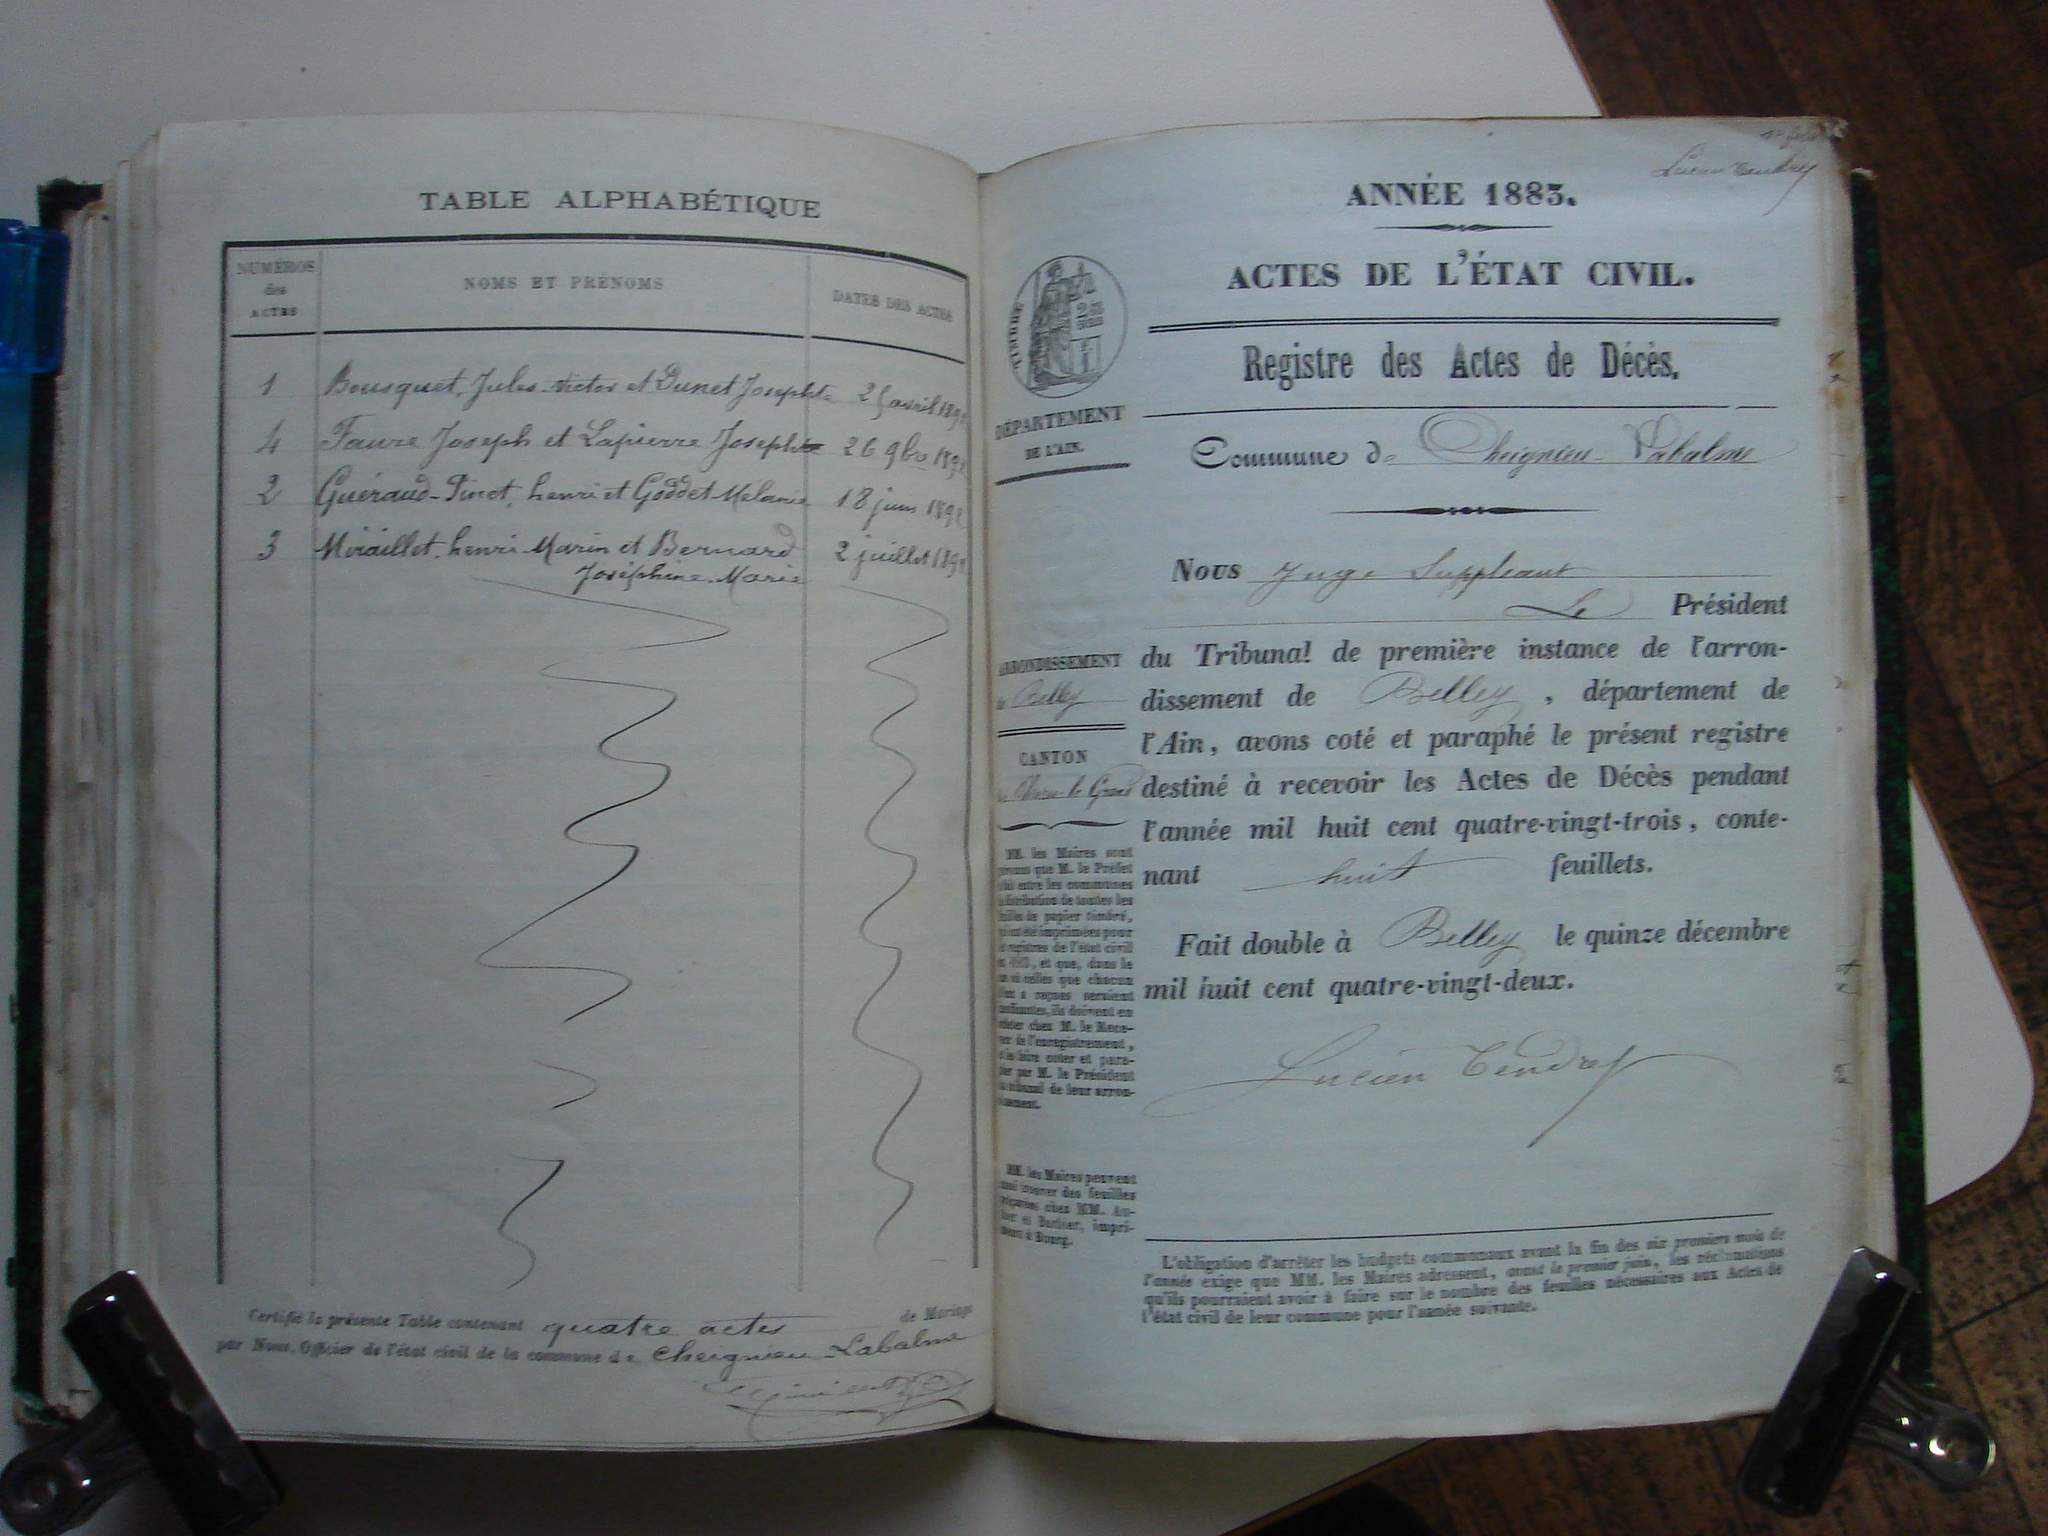 TABLE ALPHABÉTIQUE
NUMÉROS des ACTES
NOMS ET PRÉNOMS
DATES DES ACTES
1 Bousquet, Jules-Victor et Dunet Josephte 25 avril
4 Faure Joseph et Lapierre Josephte 26 9bre
2 Guéraud-Pinet, henri et Goddet Mélanie 18 juin
3 henri Marin et Bernard 2 juillet
Joséphine-Marie
Certifié la présente Table contenant quatre actes de Mariage
par Nous, Officier de l'état civil de la commune de Cheignieu-Labalme
Lucien Tendret
ANNÉE 1883.
ACTES DE L'ÉTAT CIVIL.
TIMBRE
Registre des Actes de Décès.
DÉPARTEMENT
DE L'AIN.
Commune de Cheignieu-Labalme
Nous Juge Suppléant
Le Président
ARRONDISSEMENT
de Belley
CANTON
le Grand
du Tribunal de première instance de l'arron-
dissement de Belley, département de
l'Ain, avons coté et paraphé le présent registre
destiné à recevoir les Actes de Décès pendant
l'année mil huit cent quatre-vingt-trois, conte-
nant huit feuillets.
Fait double à Belley le quinze décembre
mil huit cent quatre-vingt-deux.
Lucien Tendret
MM. les Maires sont
que M. le Préfet
entre les communes
distribution de toutes les
de papier timbré,
imprimées pour
registres de l'état civil
et que, dans le
celles que chacun
reçues seraient
ils doivent en
chez M. le Rece-
de l'enregistrement,
faire coter et para-
par M. le Président
tribunal de leur arron-
MM. les Maires peuvent
trouver des feuilles
chez MM.
et Barbier, impri-
à Bourg.
L'obligation d'arrêter les budgets communaux avant la fin des six premiers mois de
l'année exige que MM. les Maires adressent, avant le premier juin, les réclamations
qu'ils pourraient avoir à faire sur le nombre des feuilles nécessaires aux Actes de
l'état civil de leur commune pour l'année suivante.